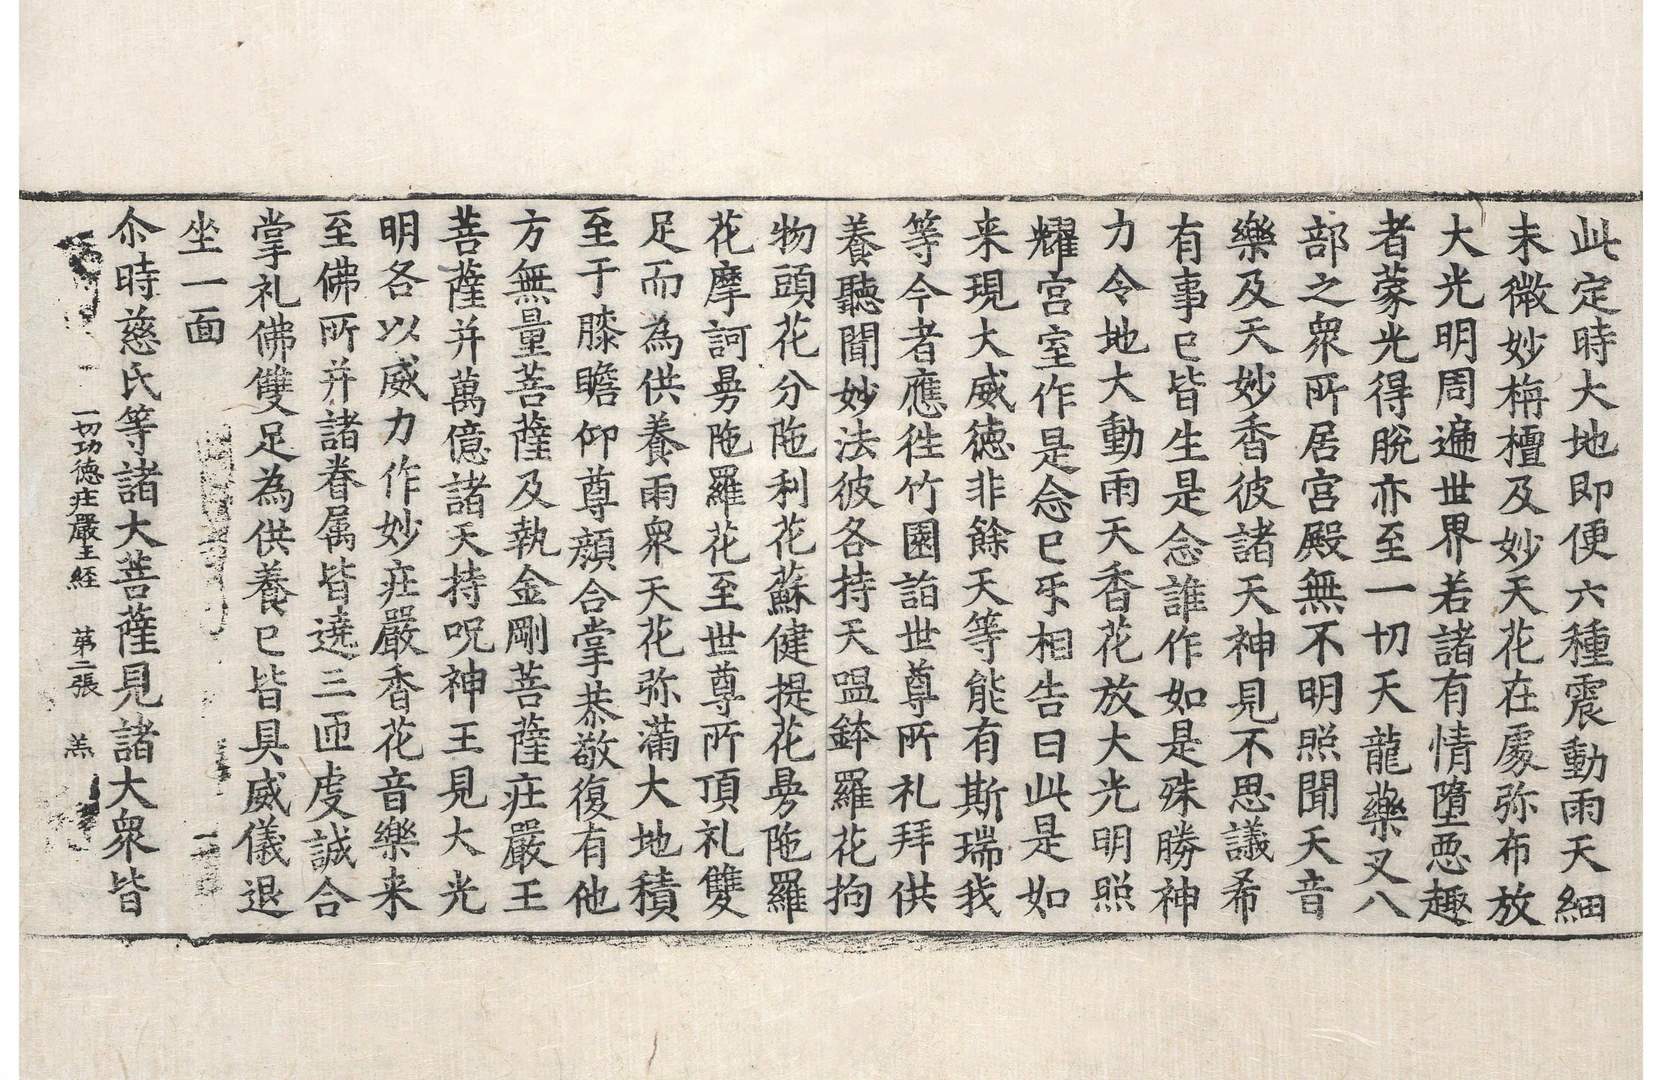 此定時大地即便六種震動雨天細
末微妙栴檀及妙天花在處弥布放
大光明周遍世界若諸有情墮惡趣
者蒙光得脫亦至一切天龍藥叉八
部之衆所居宮殿無不明照聞天音
樂及天妙香彼諸天神見不思議希
有事已皆生是念誰作如是殊勝神
力令地大動雨天香花放大光明照
耀宮室作是念已㸦相告曰此是如
来現大威德非餘天等能有斯瑞我
等今者應往竹園詣世尊所礼拜供
養聽聞妙法彼各持天嗢鉢羅花拘
物頭花分陁利花蘇健提花曼陁羅
花摩訶曼陁羅花至世尊所頂礼雙
足而為供養雨衆天花弥滿大地積
至于膝瞻仰尊顏合掌恭敬復有他
方無量菩薩及執金剛菩薩庄嚴王
菩薩并萬億諸天持呪神王見大光
明各以威力作妙庄嚴香花音樂来
至佛所并諸眷属皆遶三匝虔誠合
掌礼佛雙足為供養已皆具威儀退
坐一面
尒時慈氏等諸大菩薩見諸大衆皆
一切功德庄嚴王経 第二張 羔